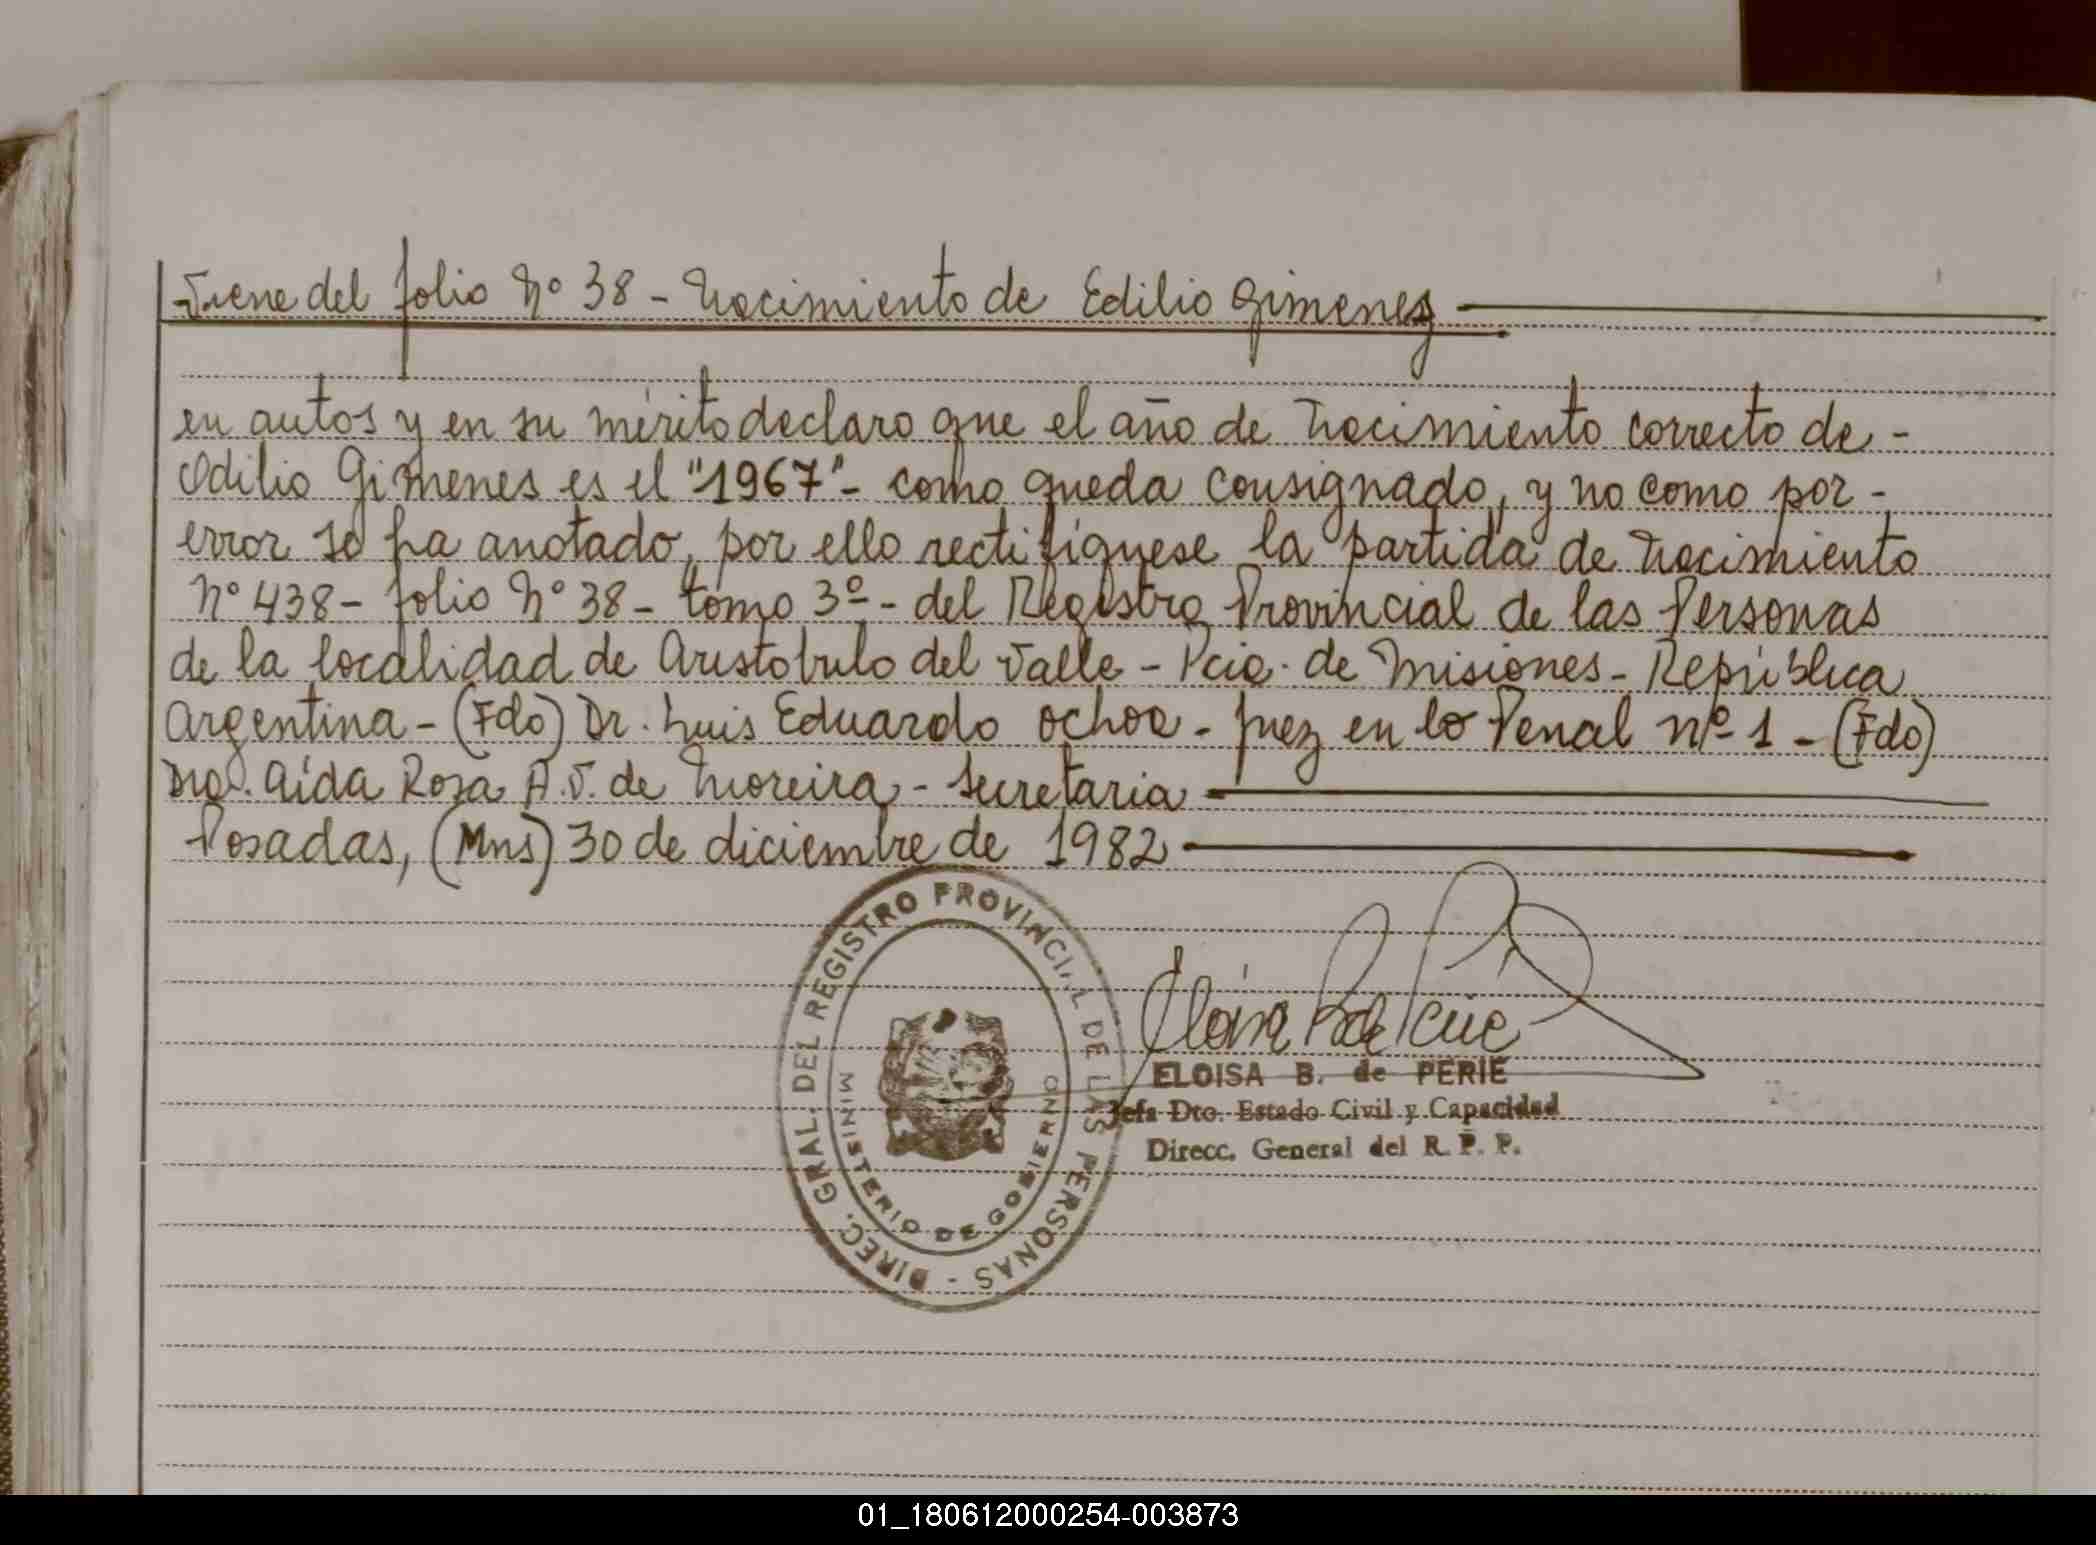 Viene del folio Nº 38 - Nacimiento de Edilio Gimenez
en autos y en su mérito declaro que el año de Nacimiento correcto de -
Odilio Gimenes es el "1967" - como queda consignado, y no como por -
error se ha anotado, por ello rectifíquese la partida de Nacimiento
Nº 438 - folio Nº 38 - tomo 3º - del Registro Provincial de las Personas
de la localidad de Aristobulo del Valle - Pcia. de Misiones - República
Argentina - (Fdo) Dr. Luis Eduardo Ochoa - Juez en lo Penal nº 1 - (Fdo)
Dra. Aída Rosa A.V. de Moreira - Secretaria
Posadas, (Mns) 30 de diciembre de 1982
DIREC. GRAL. DEL REGISTRO PROVINCIAL DE LAS PERSONAS -
MINISTERIO DE GOBIERNO
Eloisa B de Perié
ELOISA B. de PERIE
Jefa Dto. Estado Civil y Capacidad
Direcc. General del R. P. P.
01_180612000254-003873